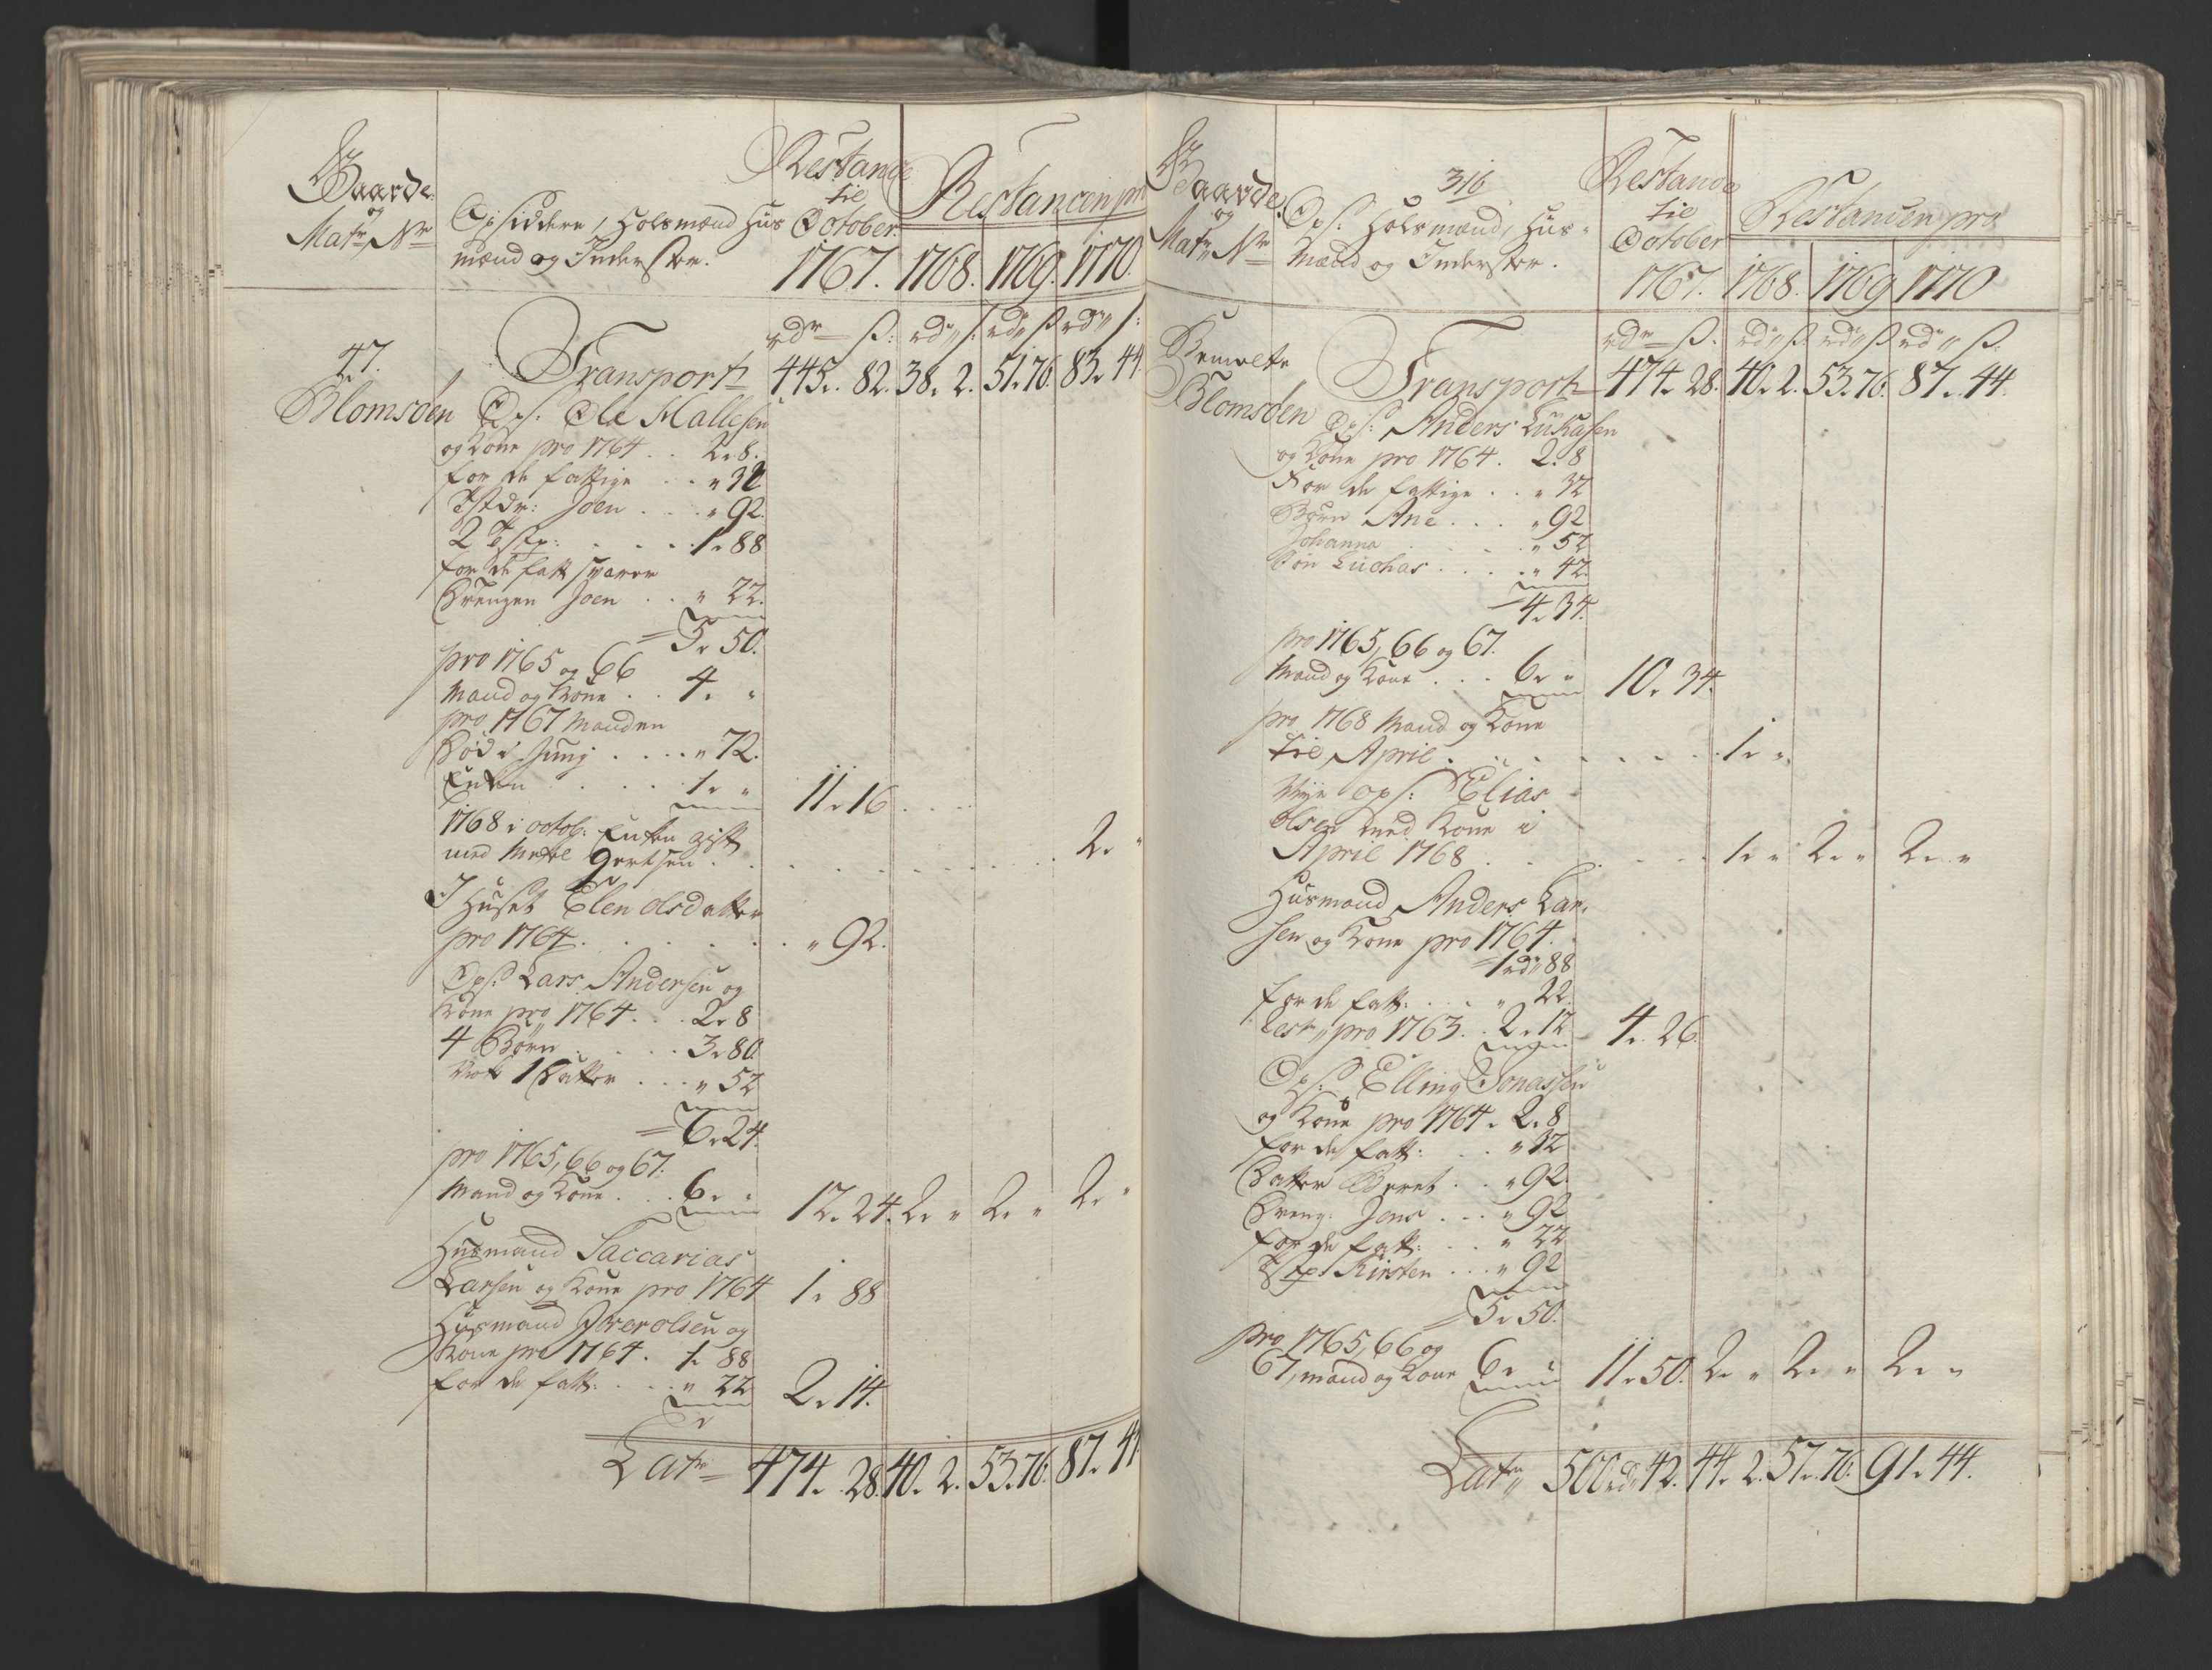 Gaarde
og
Matr Nr
Opsiddere, Holsmænd Hus
mænd og Inderster.
Restance
til
October
1767.
Restancen pro
1768. 1769. 1770.
rdr ß: rd ß: rd ß rd ß:
47.
Blomsöen
Transport 445. 82. 38. 2. 51. 76. 83. 44
Ops. Ola Hallesen
og Kone pro 1764 . . 2. 8.
for de fattige . . " 32
Tstdr: Joen . . . " 92.
2 Tstp: . . . . 1. 88
for de fatt svarer
Drengen Joen . . " 22.
5. 50.
pro 1765 og 66
Mand og Kone . . 4. "
pro 1767 Manden
Død i Junj . . . . " 72.
Enken . . . . 1. "
11. 16
1768 i octob: Enken gift
med Gertsen . . . . 2. "
I Huset Elen Olsdatter
pro 1764 . . . . . " 92.
Ops. Lars Andersen og
Kone pro 1764 . . . 2. 8
4 Børn . . . . 3. 80
Nok 1 Datter . . . " 52
6. 24.
pro 1765, 66 og 67.
Mand og Kone . . . 6. " 12. 24. 2. " 2. " 2. "
Husmand Saccarias
Larsen og Kone pro 1764 1. 88
Husmand Iver Olsen og
Kone pro 1764 . 1. 88
for de fatt: . . . " 22 2. 14.
Latr 474. 28. 40. 2. 53. 76. 87. 44
Gaarde
og
Matr Nr
316
Ops. Holsmænd, Hus-
Mænd og Inderster.
Restance
til
October
1767.
Restancen pro
1768. 1769 1770
rdr ß. rd ß rd ß rd ß.
Bemelte
Blomsöen
Transport 474. 28. 40. 2. 53. 76. 87. 44.
Ops: Anders Lukasen
og Kone pro 1764. 2. 8
For de fattige . . " 32
Børn Ane . . . " 92
Johanna . . . . " 52
Søn Luchas . . . . " 42.
4. 34.
pro 1765, 66 og 67.
Mand og Kone . . . 6. " 10. 34.
pro 1768 Mand og Kone
til April . . . . . . . 1. "
Nye ops: Elias
Olsen med Kone i
April 1768 . . . . . 1. " 2. " 2. "
Husmand Anders Lar-
sen og Kone pro 1764.
1 rd 88
for de fatt: . . . " 22.
rest pro 1763 . . 2. 12 4. 26.
Ops: Elling Jonassen
og Kone pro 1764. 2. 8
for de fatt: . . " 32
Datter Beret . . " 92
Dreng. Jens . . . " 92
for de fatt: . . " 22
Tstp: Kirsten . . . " 92
5. 50.
pro 1765, 66 og
67, mand og Kone 6. " 11. 50. 2. " 2. " 2. "
Latr 500 rd 42. 44. 2. 57. 76. 91. 44.